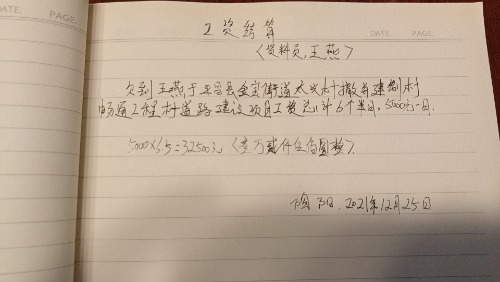 DATE. PAGE.
DATE PAGE.
工资结算
(资料员,王燕)
欠到王燕于平昌县金宝街道太兴村撤并建制村
畅通工程村道路建设项目工资总计6个半月,5000元一月.
5000×6.5=32500元(叁万贰仟伍佰圆整).
2021年12月25日